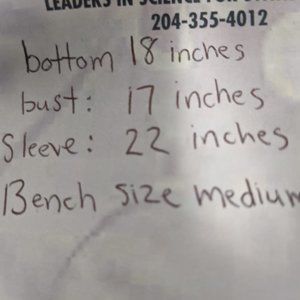 LEADERS IN SCIENCE FOR
204-355-4012
bottom 18 inches
bust: 17 inches
Sleeve: 22 inches
Bench size medium